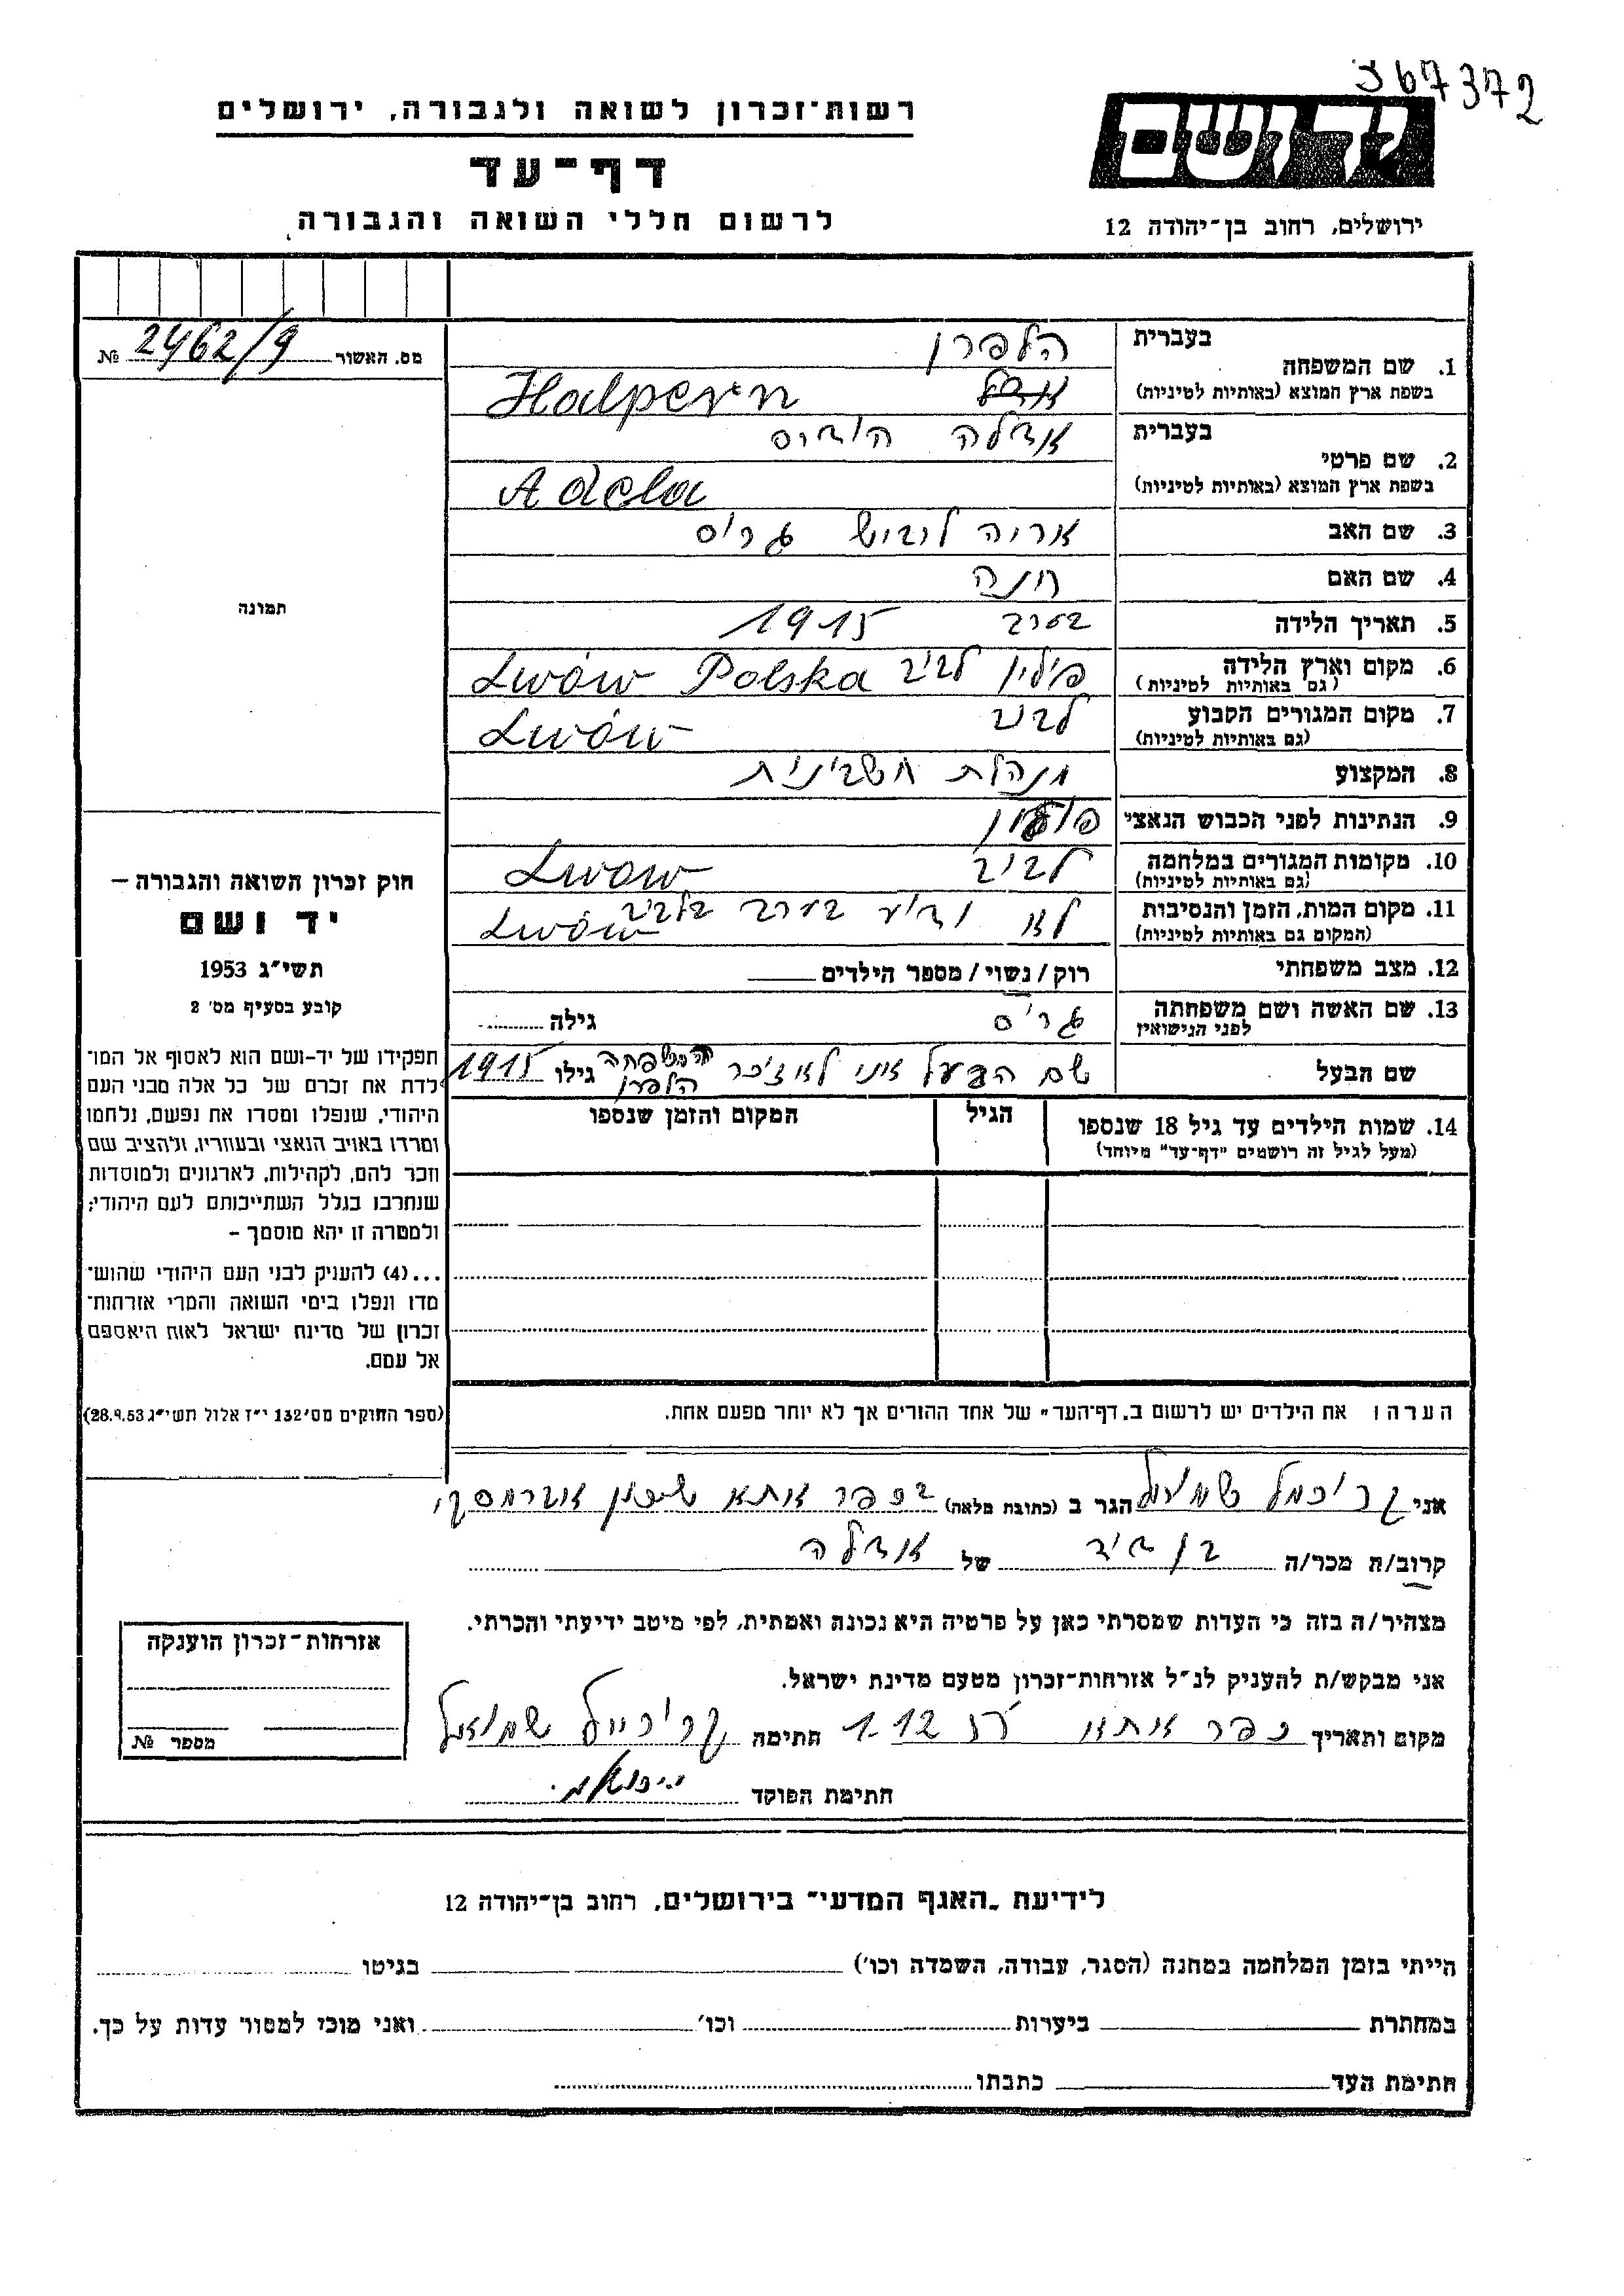 367372
יד ושם
ירושלים, רחוב בן־יהודה 12
רשות־זכרון לשואה ולגבורה, ירושלים
דף־עד
לרשום חללי השואה והגבורה
מס. האשור 2462/9 №
תמונה
1. שם המשפחה בעברית הלפרן
בשפת ארץ המוצא (באותיות לטיניות) Halpern
2. שם פרטי בעברית אדלה הודיס
בשפת ארץ המוצא (באותיות לטיניות) Adela
3. שם האב אריה לוביש גריס
4. שם האם
5. תאריך הלידה בערב 1915
6. מקום וארץ הלידה (גם באותיות לטיניות) פולין לביב Lwów Polska
7. מקום המגורים הקבוע (גם באותיות לטיניות) לביב Lwów
8. המקצוע מנהלת חשבונות
9. הנתינות לפני הכבוש הנאצי פולין
10. מקומות המגורים במלחמה (גם באותיות לטיניות) לביב Lwow
11. מקום המות, הזמן והנסיבות (המקום גם באותיות לטיניות) לא ידוע בערב בלביב Lwów
12. מצב משפחתי רוק/נשוי/מספר הילדים
13. שם האשה ושם משפחתה לפני הנישואין גריס גילה
שם הבעל שם הבעל איני לא זוכר המשפחה הלפרן גילו 1915
14. שמות הילדים עד גיל 18 שנספו הגיל המקום והזמן שנספו
(מעל לגיל זה רושמים "דף־עד" מיוחד)
הערה: את הילדים יש לרשום ב„דף־העד" של אחד ההורים אך לא יותר מפעם אחת.
חוק זכרון השואה והגבורה –
יד ושם
תשי״ג 1953
קובע בסעיף מס׳ 2
תפקידו של יד-ושם הוא לאסוף אל המו־
לדת את זכרם של כל אלה מבני העם
היהודי, שנפלו ומסרו את נפשם, נלחמו
ומרדו באויב הנאצי ובעוזריו, ולהציב שם
וזכר להם, לקהילות, לארגונים ולמוסדות
שנחרבו בגלל השתייכותם לעם היהודי;
ולמטרה זו יהא מוסמך –
...(4) להעניק לבני העם היהודי שהוש־
מדו ונפלו בימי השואה והמרי אזרחות־
זכרון של מדינת ישראל לאות היאספם
אל עמם.
(ספר החוקים מס׳ 132 י״ז אלול תשי״ג 28.9.53)
אני שמואל הגר ב (כתובת מלאה) בכפר אתא שיכון אברמסקי
קרוב/ה מכר/ה בן דוד של אדלה
מצהיר/ה בזה כי העדות שמסרתי כאן על פרטיה היא נכונה ואמתית, לפי מיטב ידיעתי והכרתי.
אני מבקש/ת להעניק לנ״ל אזרחות־זכרון מטעם מדינת ישראל.
מקום ותאריך כפר אתא 1.12 חתימה שמואל
חתימת הפוקד
אזרחות־זכרון הוענקה
מספר №
לידיעת „האגף המדעי״ בירושלים, רחוב בן־יהודה 12
הייתי בזמן המלחמה במחנה (הסגר, עבודה, השמדה וכו׳) בגיטו
במחתרת ביערות וכו׳ ואני מוכן למסור עדות על כך.
חתימת העד כתבתו